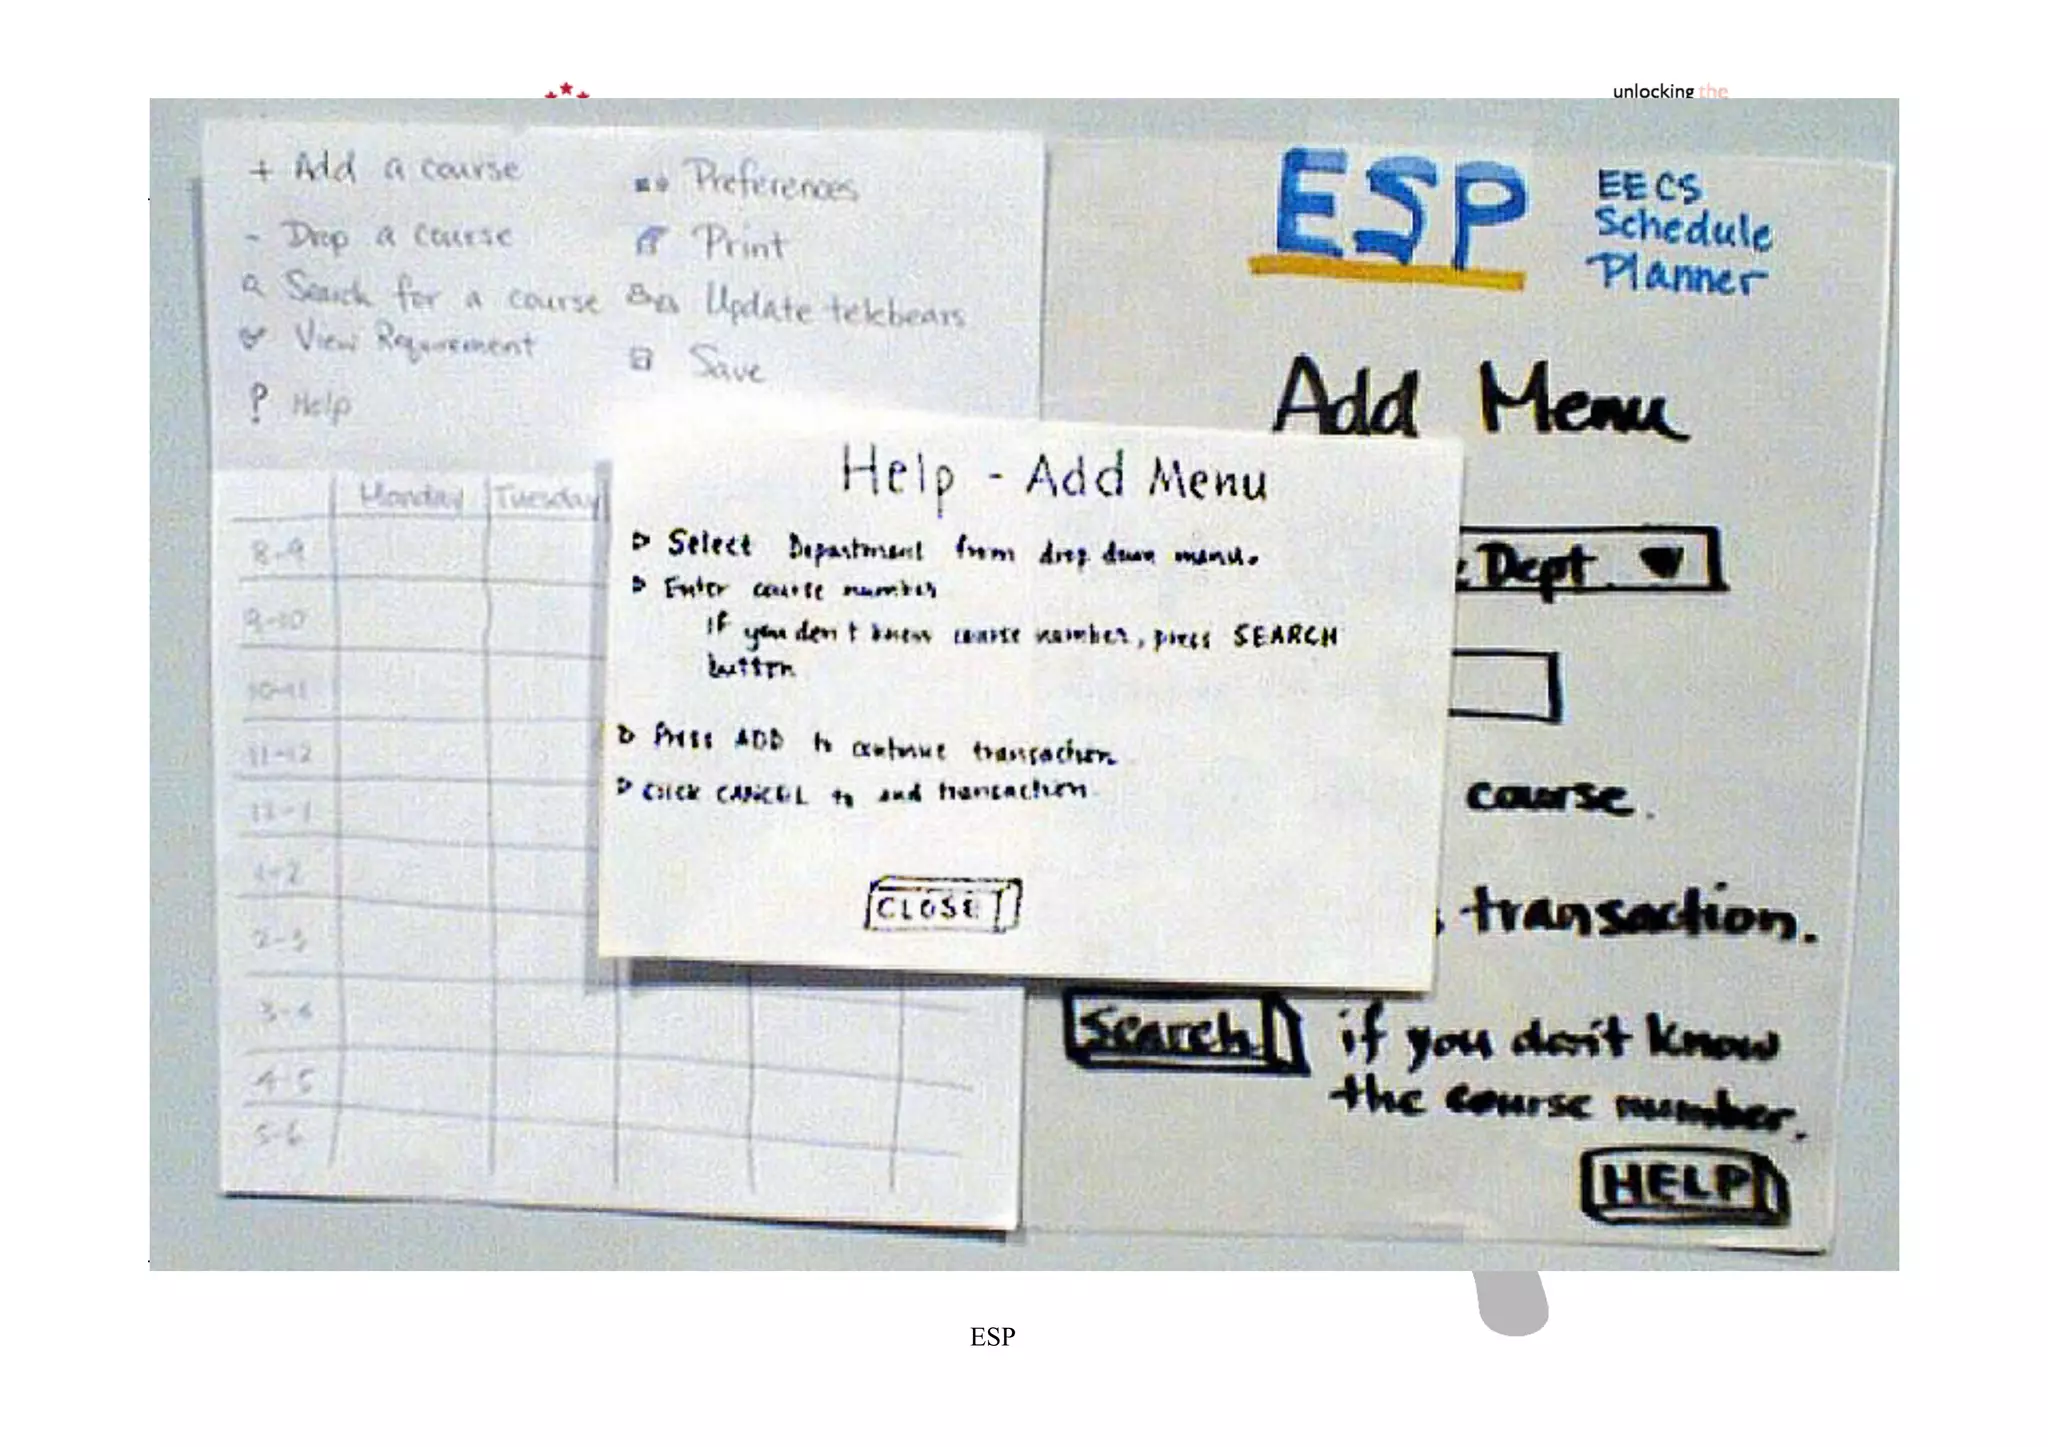 unlocking the
+ Add a course
- Drop a course
Search for a course
View Requirement
? Help
Preferences
Print
Update telebears
Save
ESP
EECS
Schedule
Planner
Add Menu
Dept.
course.
transaction.
Search if you don't know
the course number.
HELP
Help - Add Menu
Select Department from drop down menu.
Enter course number
If you don't know course number, press SEARCH
button
Press ADD to continue transaction
Click CANCEL to end transaction
CLOSE
Monday Tuesday
8-9
9-10
10-11
11-12
12-1
1-2
2-3
3-4
4-5
5-6
ESP